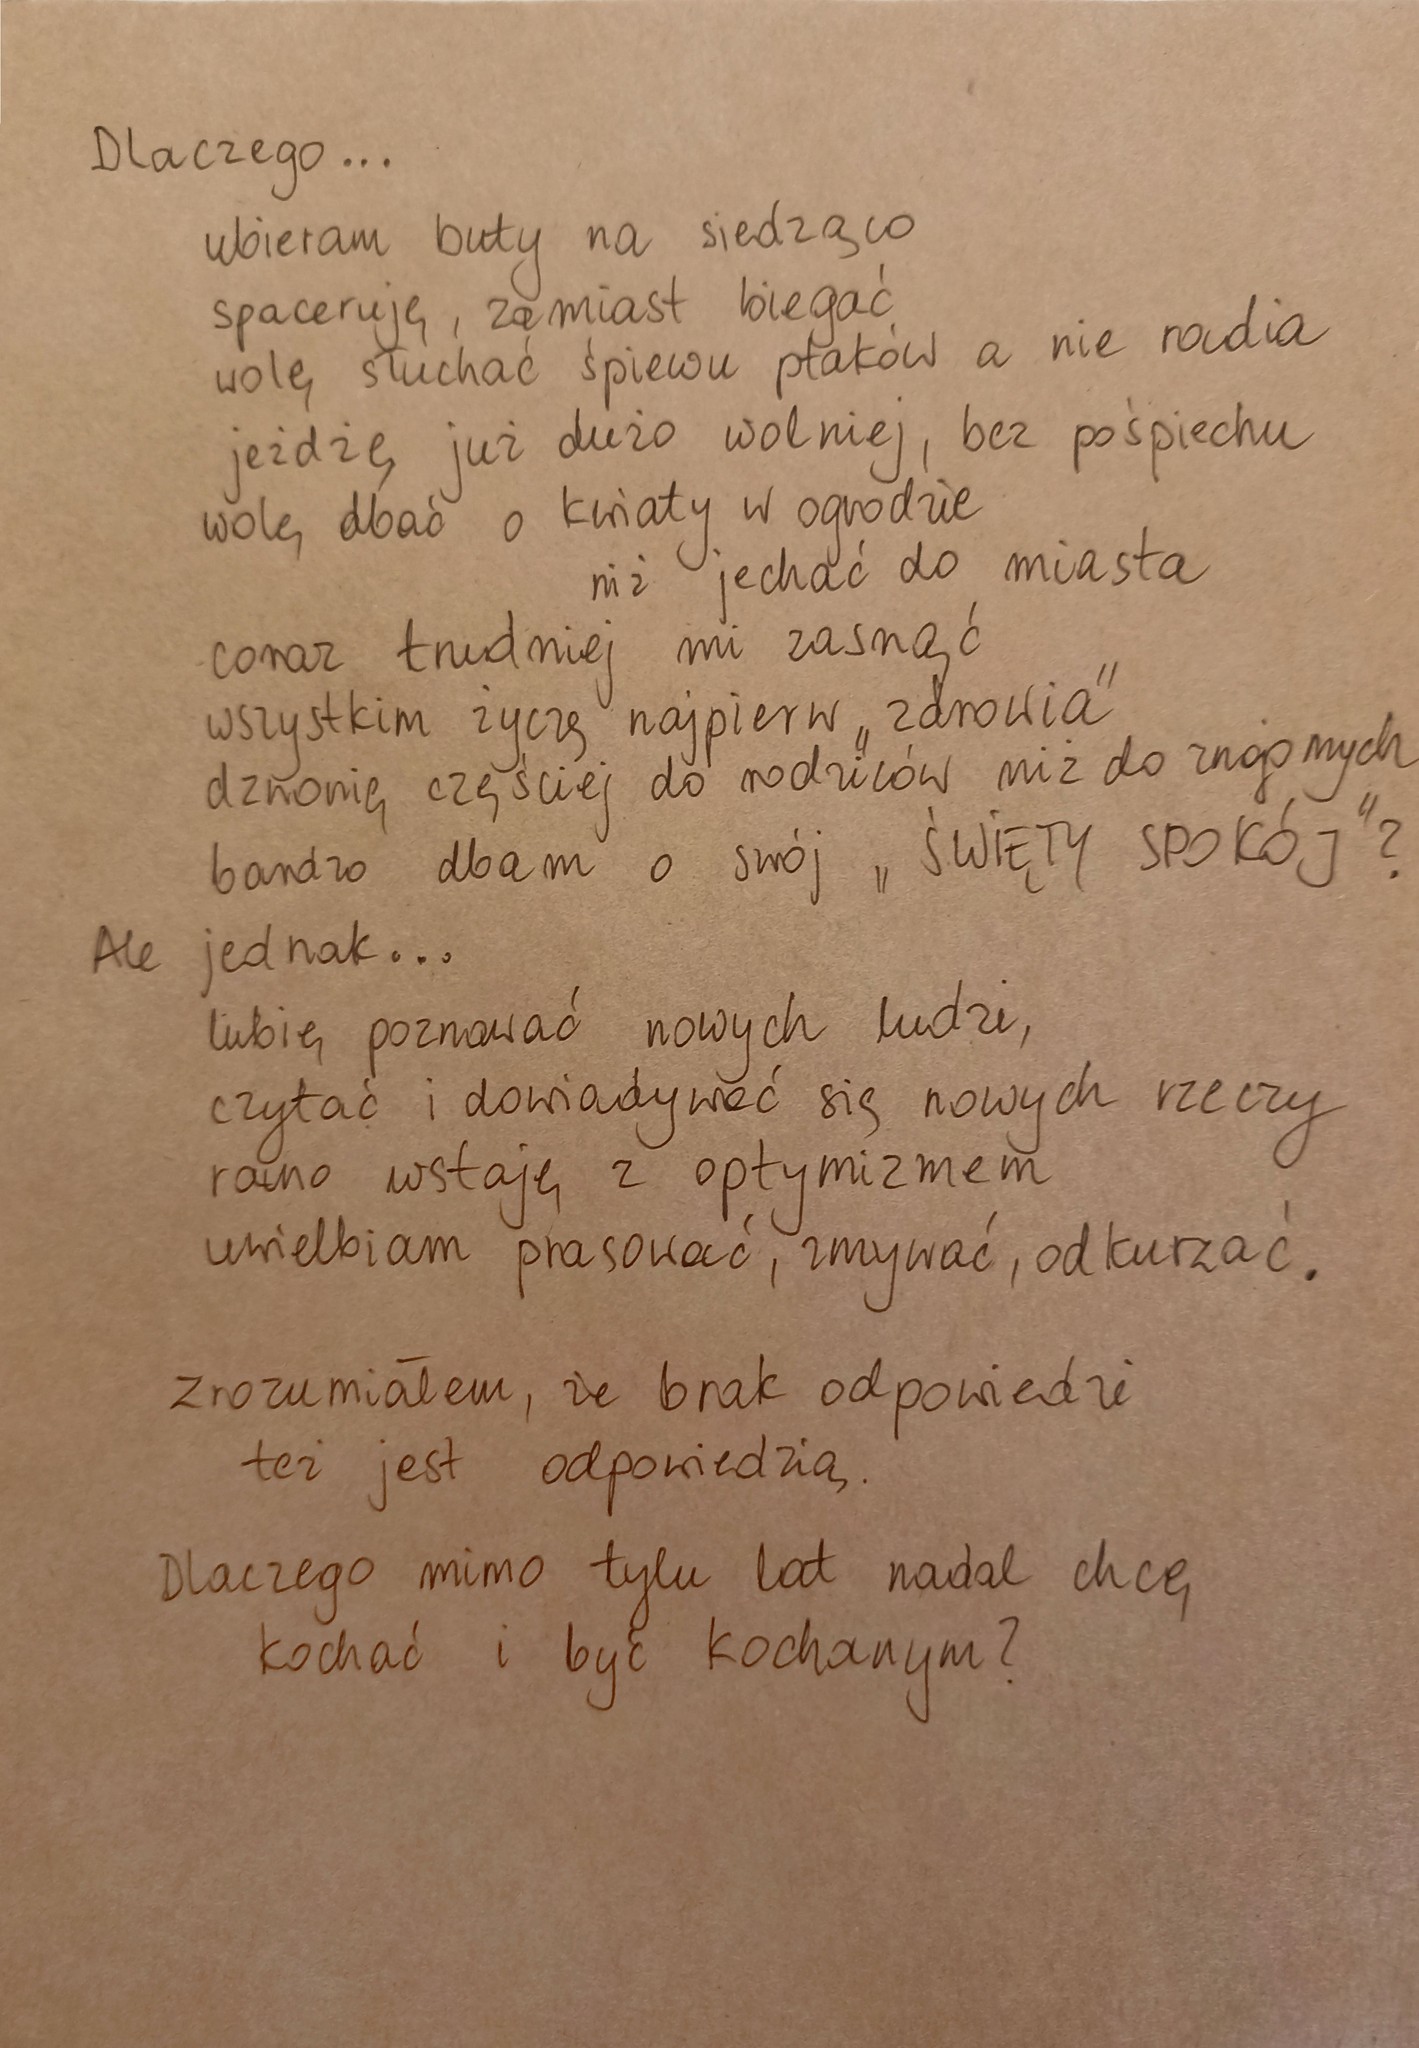 Dlaczego...
ubieram buty na siedząco
spaceruję, zamiast biegać
wolę słuchać śpiewu ptaków a nie radia
jeżdżę już dużo wolniej, bez pośpiechu
wolę dbać o kwiaty w ogrodzie
niż jechać do miasta
coraz trudniej mi zasnąć
wszystkim życzę najpierw „zdrowia"
dzwonię częściej do rodziców niż do znajomych
bardzo dbam o swój „ŚWIĘTY SPOKÓJ"?
Ale jednak...
lubię poznawać nowych ludzi,
czytać i dowiadywać się nowych rzeczy
rano wstaję z optymizmem
uwielbiam prasować, zmywać, odkurzać.
Zrozumiałem, że brak odpowiedzi
też jest odpowiedzią.
Dlaczego mimo tylu lat nadal chcę
kochać i być kochanym?